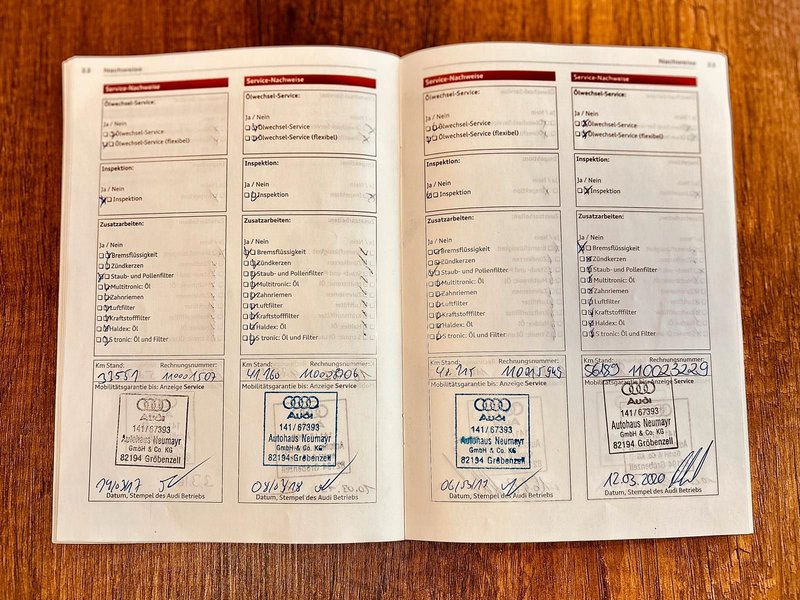 Nachweise
Service-Nachweise
Ölwechsel-Service:
Ja / Nein
Ölwechsel-Service
Ölwechsel-Service (flexibel)
Inspektion:
Ja / Nein
Inspektion
Zusatzarbeiten:
Ja / Nein
Bremsflüssigkeit
Zündkerzen
Staub- und Pollenfilter
Multitronic: Öl
Zahnriemen
Luftfilter
Kraftstofffilter
Haldex: Öl
S tronic: Öl und Filter
Km Stand: Rechnungsnummer:
33551 110001507
Mobilitätsgarantie bis: Anzeige Service
Audi
141/67393
Autohaus Neumayr
GmbH & Co. KG
82194 Gröbenzell
Datum, Stempel des Audi Betriebs
Service-Nachweise
Ölwechsel-Service:
Ja / Nein
Ölwechsel-Service
Ölwechsel-Service (flexibel)
Inspektion:
Ja / Nein
Inspektion
Zusatzarbeiten:
Ja / Nein
Bremsflüssigkeit
Zündkerzen
Staub- und Pollenfilter
Multitronic: Öl
Zahnriemen
Luftfilter
Kraftstofffilter
Haldex: Öl
S tronic: Öl und Filter
Km Stand: Rechnungsnummer:
41.160
Mobilitätsgarantie bis: Anzeige Service
Audi
141/67393
Autohaus Neumayr
GmbH & Co. KG
82194 Gröbenzell
Datum, Stempel des Audi Betriebs
Nachweise 23
Service-Nachweise
Ölwechsel-Service:
Ja / Nein
Ölwechsel-Service
Ölwechsel-Service (flexibel)
Inspektion:
Ja / Nein
Inspektion
Zusatzarbeiten:
Ja / Nein
Bremsflüssigkeit
Zündkerzen
Staub- und Pollenfilter
Multitronic: Öl
Zahnriemen
Luftfilter
Kraftstofffilter
Haldex: Öl
S tronic: Öl und Filter
Km Stand: Rechnungsnummer:
110015949
Mobilitätsgarantie bis: Anzeige Service
Audi
141/67393
Autohaus Neumayr
GmbH & Co. KG
82194 Gröbenzell
Datum, Stempel des Audi Betriebs
Service-Nachweise
Ölwechsel-Service:
Ja / Nein
Ölwechsel-Service
Ölwechsel-Service (flexibel)
Inspektion:
Ja / Nein
Inspektion
Zusatzarbeiten:
Ja / Nein
Bremsflüssigkeit
Zündkerzen
Staub- und Pollenfilter
Multitronic: Öl
Zahnriemen
Luftfilter
Kraftstofffilter
Haldex: Öl
S tronic: Öl und Filter
Km Stand: Rechnungsnummer:
56189 110023229
Mobilitätsgarantie bis: Anzeige Service
Audi
141/67393
Autohaus Neumayr
GmbH & Co. KG
82194 Gröbenzell
12.03.2020
Datum, Stempel des Audi Betriebs